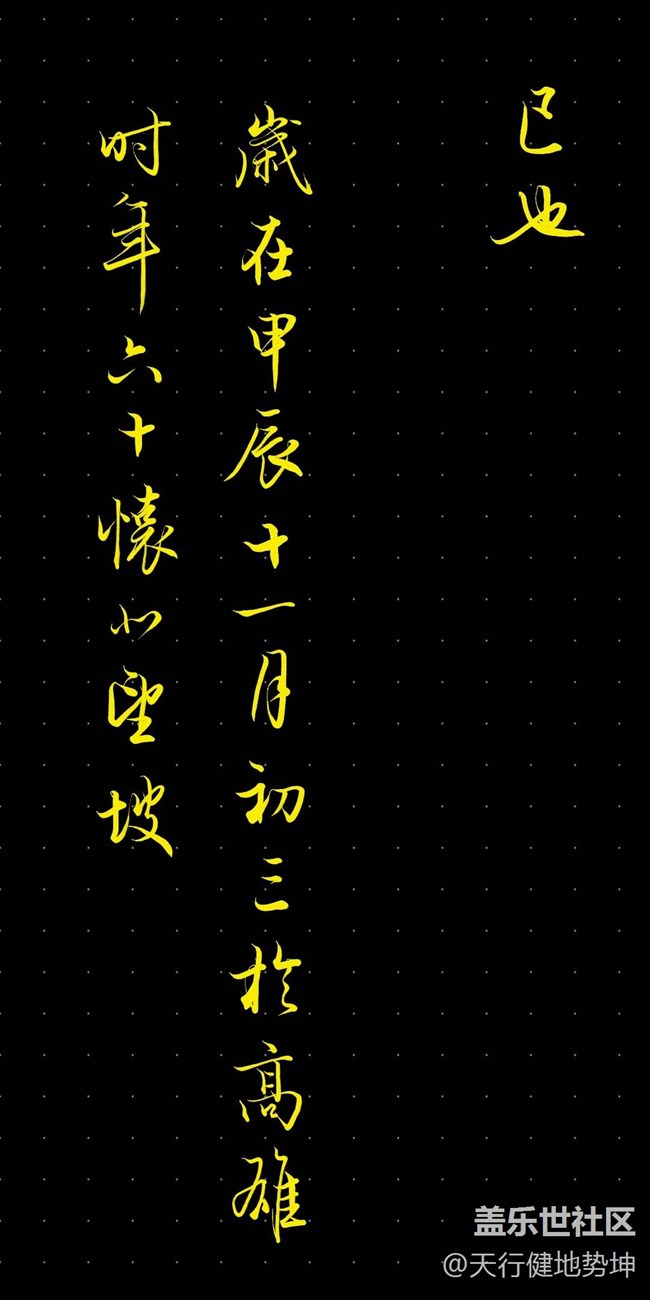 已也
歲在甲辰十一月初三於高雄
时年六十懷坡
盖乐世社区
@天行健地势坤